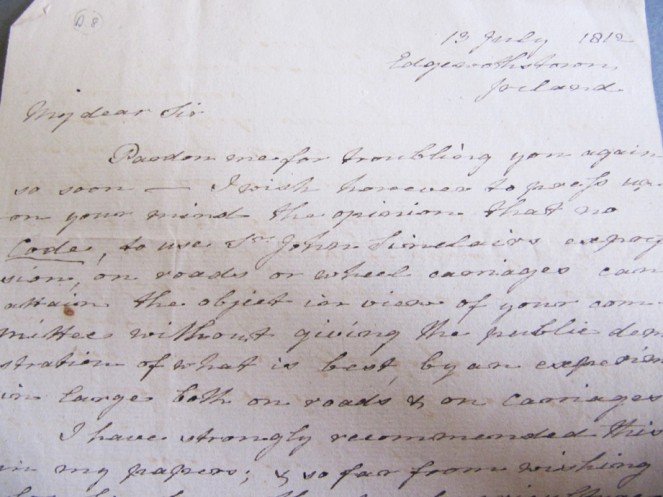 D 8
13 July 1812
Edgeworthstown
Ireland
My dear Sir
Pardon me for troubling you again
so soon — I wish however to press up-
on your mind the opinion that no
Code, to use Sr. John Sinclairs expres
sion, on roads or wheel carriages can
attain the object in view of your com
mittee without giving the public dem
stration of what is best, by an experim
in large both on roads & on carriages
I have strongly recommended this
in my papers; & so far from wishing